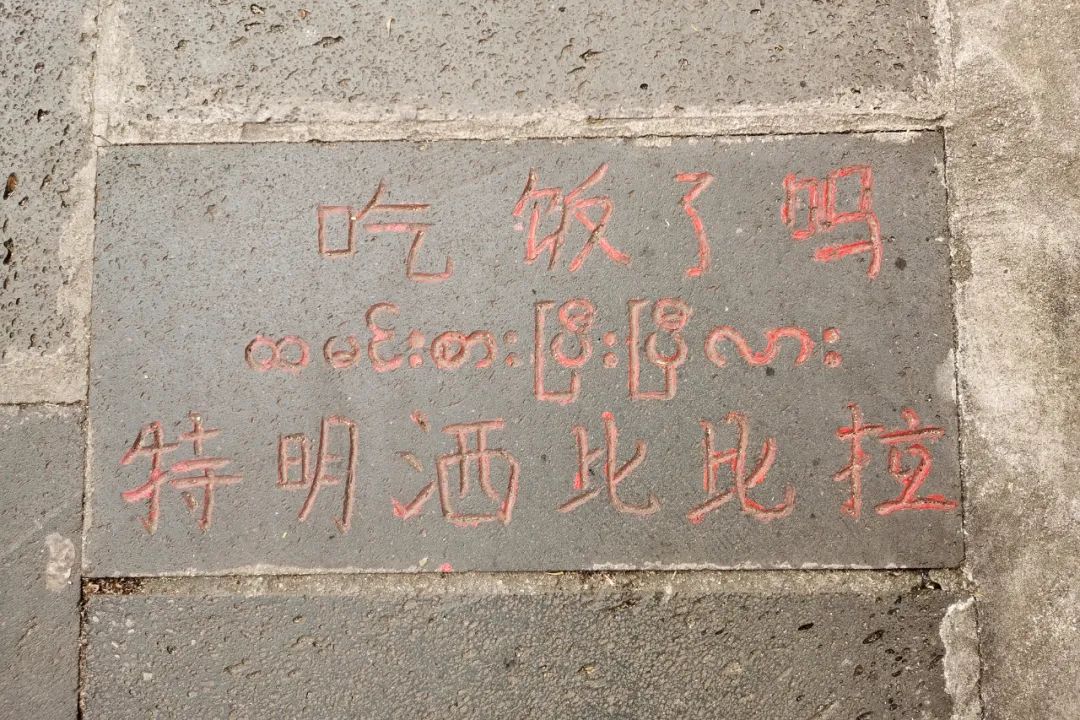 吃饭了吗
ထမင်းစားပြီးပြီလား
特明洒比比拉